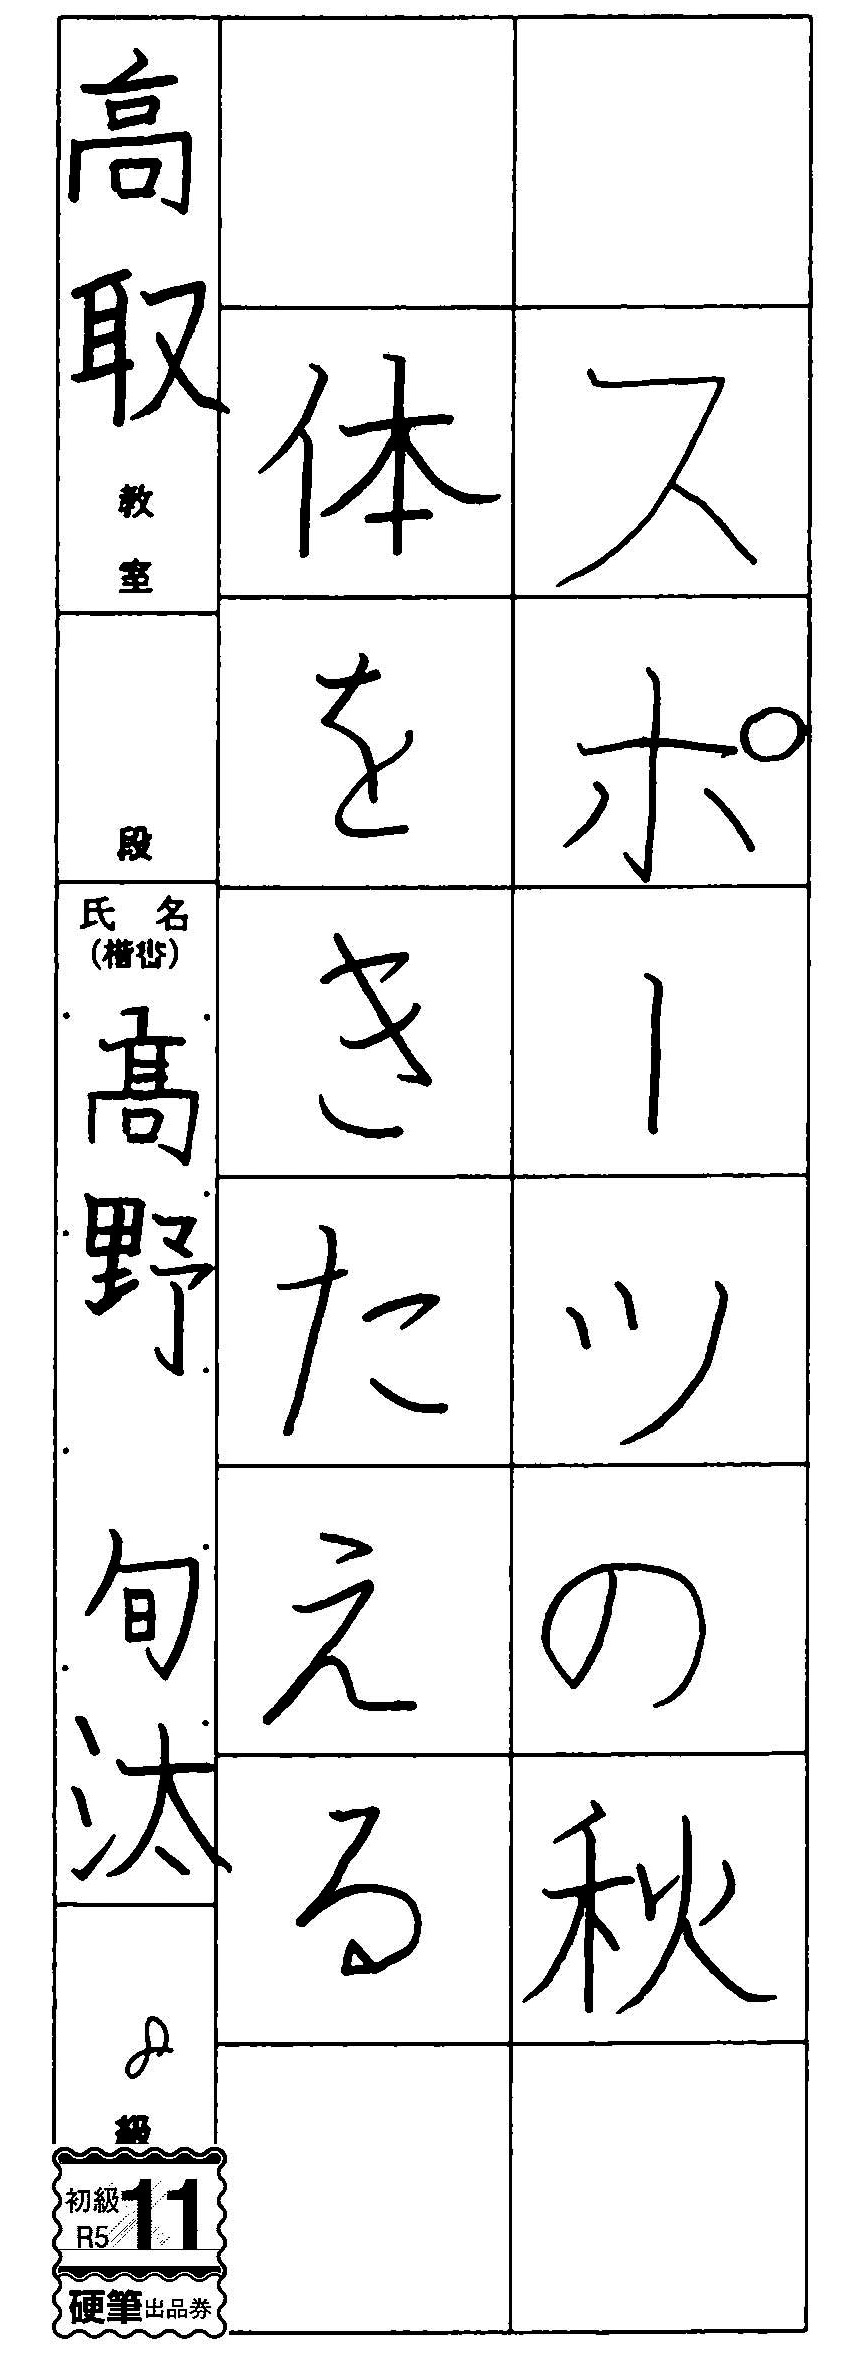 スポーツの秋
体をきたえる
高取教室
段
氏名
(楷書)
髙野 旬汰
8級
初級 11
R5
硬筆出品券